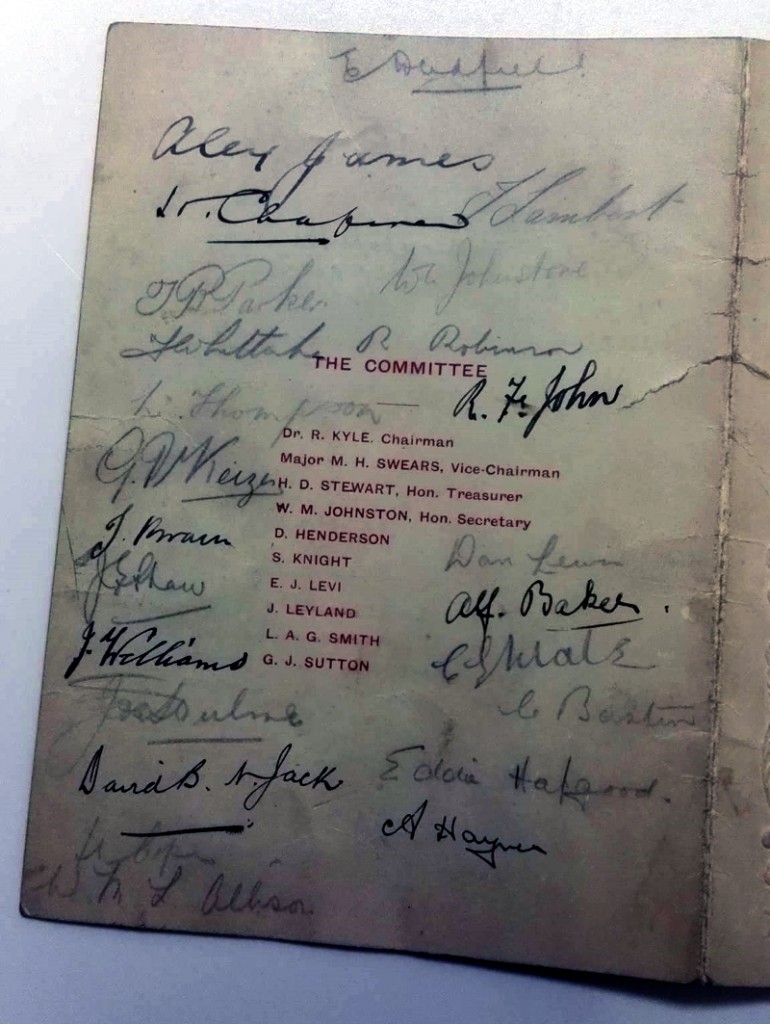 Alex James
H. Chapman J Lambert
T B Parker W Johnstone
T Whittaker R Robinson
THE COMMITTEE
L. Thompson R. F. John
Dr. R. KYLE. Chairman
Major M. H. SWEARS, Vice-Chairman
G. P. Keizer H. D. STEWART, Hon. Treasurer
W. M. JOHNSTON, Hon. Secretary
J. Brain D. HENDERSON Dan Lewis
S. KNIGHT
J E Shaw E. J. LEVI
J. LEYLAND Alf. Baker.
L. A. G. SMITH
J. Williams G. J. SUTTON
Joe Hulme C Bastin
David B. N. Jack Eddie Hapgood.
A Haynes
Allison